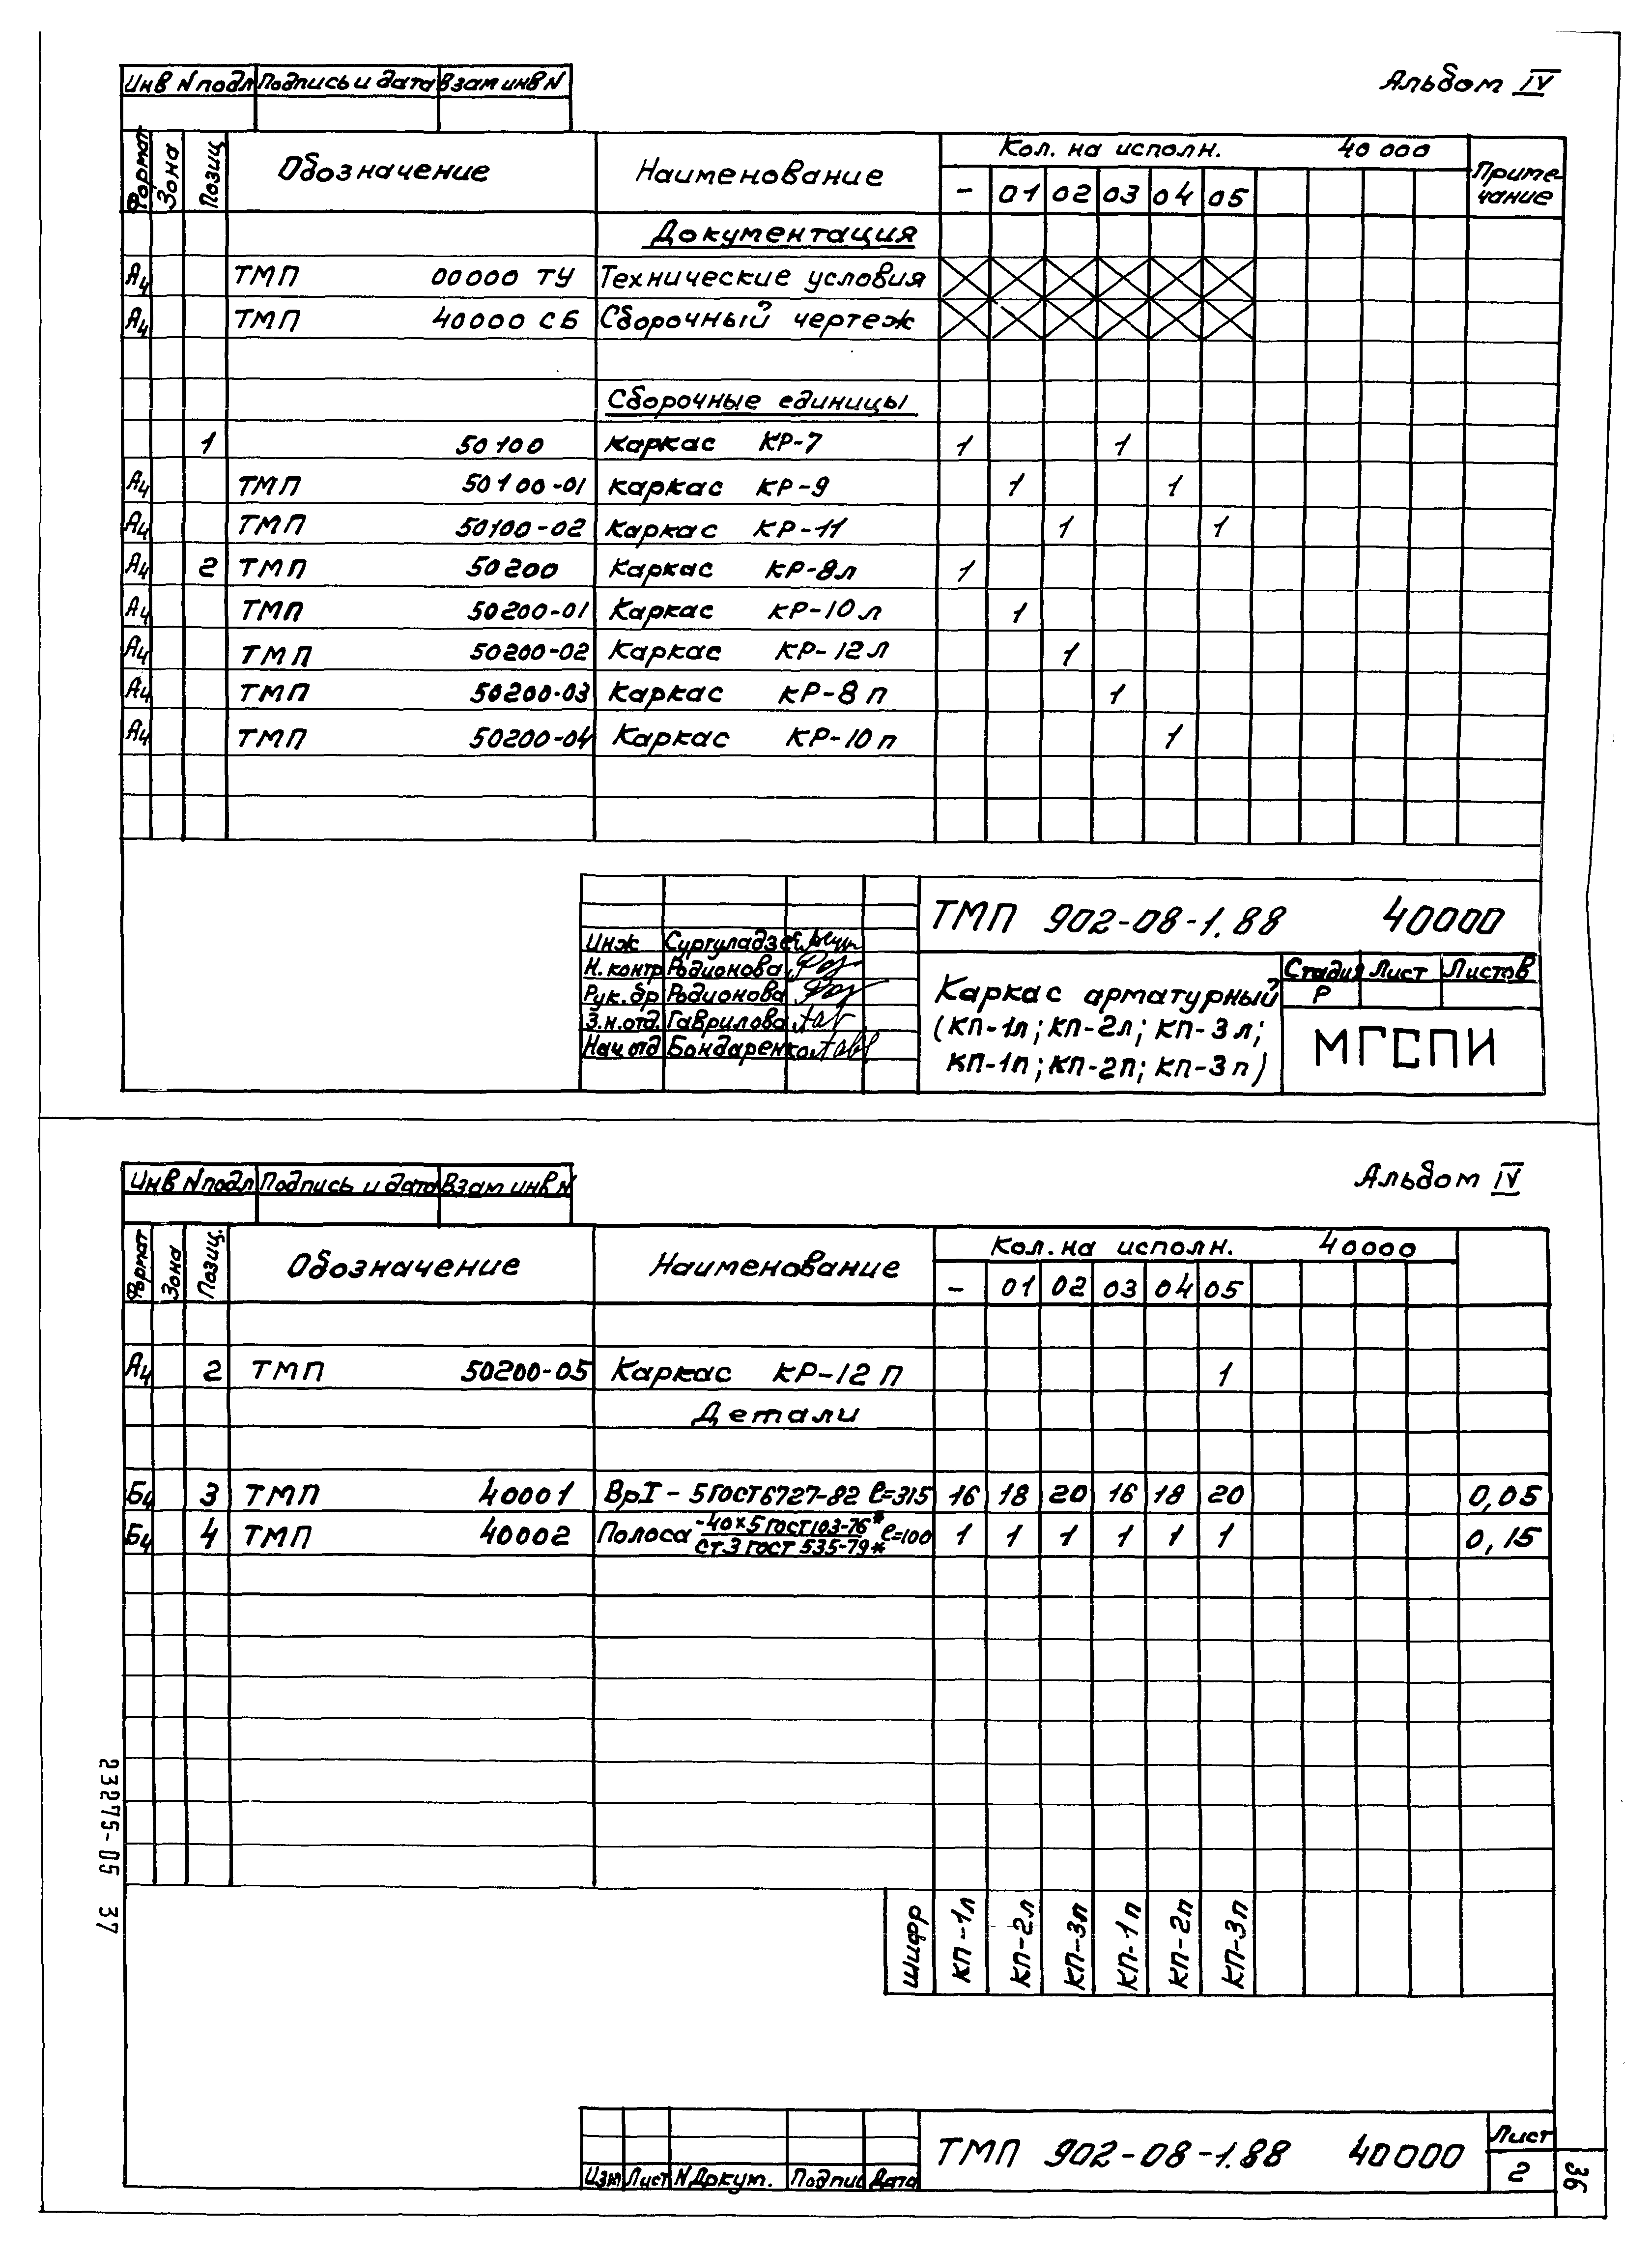 Альбом IV
Инв N подл Подпись и дата Взам инв N
Формат Зона Позиц Обозначение Наименование Кол. на исполн. 40 000 Приме-
чание
- 01 02 03 04 05
Документация
А4 ТМП 00000 ТУ Технические условия
А4 ТМП 40000 СБ Сборочный чертеж
Сборочные единицы
1 50100 Каркас КР-7 1 1
А4 ТМП 50100-01 Каркас КР-9 1 1
А4 ТМП 50100-02 Каркас КР-11 1 1
А4 2 ТМП 50200 Каркас КР-8л 1
А4 ТМП 50200-01 Каркас КР-10л 1
А4 ТМП 50200-02 Каркас КР-12л 1
А4 ТМП 50200-03 Каркас КР-8п 1
А4 ТМП 50200-04 Каркас КР-10п 1
ТМП 902-08-1.88 40000
Инж Сургуладзе
Н. контр Родионова
Рук. бр Родионова
З.н.отд. Гаврилова
Нач отд Бондаренко
Каркас арматурный
(КП-1л; КП-2л; КП-3л;
КП-1п; КП-2п; КП-3п)
Стадия Лист Листов
Р
МГСПИ
Альбом IV
Инв N подл Подпись и дата Взам инв N
Формат Зона Позиц. Обозначение Наименование Кол. на исполн. 40000
- 01 02 03 04 05
А4 2 ТМП 50200-05 Каркас КР-12п 1
Детали
Бч 3 ТМП 40001 ВрI - 5 ГОСТ 6727-82 ℓ=315 16 18 20 16 18 20 0,05
Бч 4 ТМП 40002 Полоса -40×5 ГОСТ 103-76* ℓ=100 1 1 1 1 1 1 0,15
Ст 3 ГОСТ 535-79*
Шифр КП-1л КП-2л КП-3п КП-1п КП-2п КП-3п
23275-05 37
ТМП 902-08-1.88 40000 Лист
2
Изм Лист N Докум. Подпис Дата
36